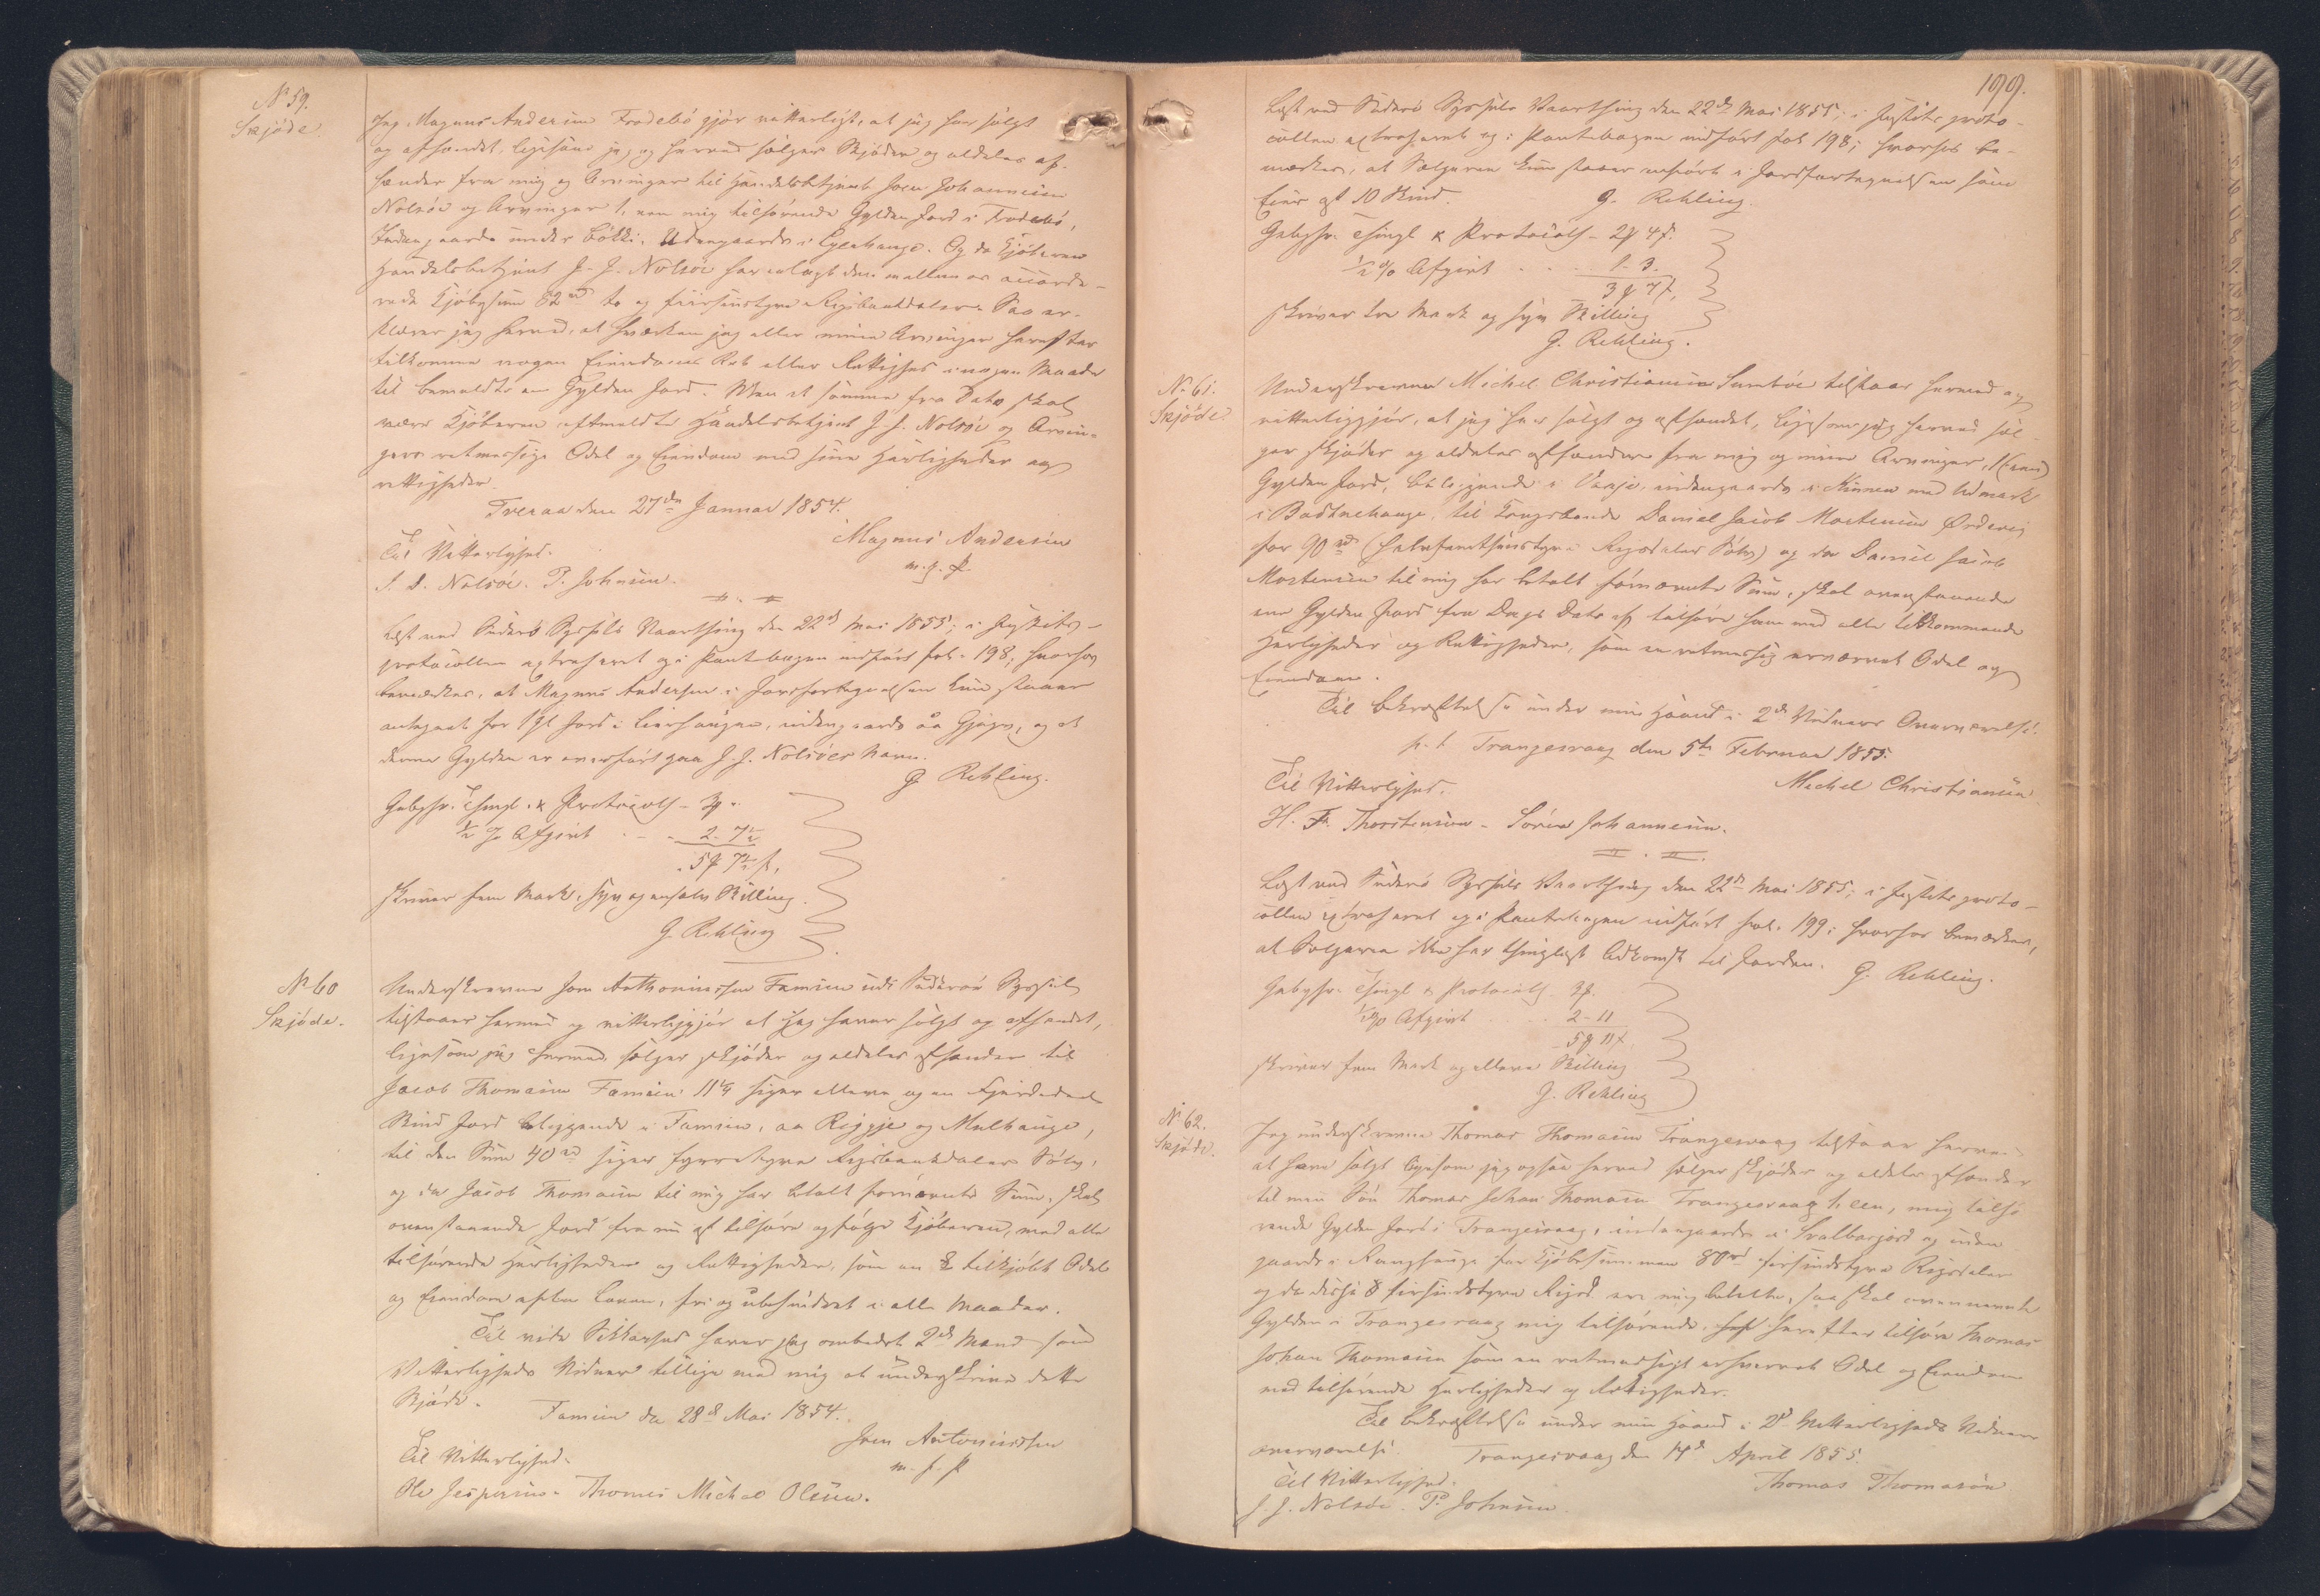 No 59.
Skjöde.
Jeg Magnus Andersen Frodebö gjör vitterligt, at jeg har solgt
og afhændet, ligesom jeg og herved sælger Skjöder og aldeles af-
hænder fra mig og Arvinger til Handelsbetjent Joen Johannesen
Nolsöe og Arvinger 1, een mig tilhörende Gylden Jord i Frodebö,
Indengaards under Bökki, Udengaards i Eysthauge. Og da Kjöberen
Handelsbetjent J. J. Nolsöe har erlagt den mellem os accorde-
rede Kjöbesum 82 rd to og firsindstyve Rigsbankdaler. Saa er-
klærer jeg herved, at hverken jeg eller mine Arvinger herefter
tilkomme nogen Eiendoms Ret eller Rettighed i nogen Maade
til bemeldte en Gylden Jord. Men at samme fra Dato skal
være Kjöberen oftmeldte Handelsbetjent J. J. Nolsöe og Arvin-
gers retmæssige Odel og Eiendom med sine Herligheder og
rettigheder.
Tveraa den 27de Januar 1854.
Magnus Andersen
Til Vitterlighed.
m. f. P.
J. D. Nolsöe. P. Johnsen.
Læst ved Suderö Syssels Vaarthing den 22de Mai 1855; i Justits-
protocollen extraheret og i Pantebogen indfört fol. 198; hvorhos
bemærkes, at Magnus Andersen i Jordfortegnelsen kun staaer
antegnet for 1 Gl Jord i Liarhaugen, indengaards aa Gjögv, og at
denne Gylden er overfört paa J. J. Nolsöes Navn.
G. Rehling.
Gebyhr. Thingl. & Protocoll - 3 "
½ % Afgivt . . . 2. 7½
5 7½ s,
skriver fem Mark, syv og en halv Skilling.
G. Rehling
No 60
Skjöde.
Underskrevne Joen Anthoniussen Famien udi Suderöe Syssel
tilstaaer hermed og vitterliggjör at jeg haver solgt og afhændet,
ligesom jeg hermed sælger skjöder og aldeles afhænder til
Jacob Thomasen Famien 11¼ siger elleve og en Fjerdedeel
Skind Jord beliggende i Famien, aa Reggje og Mulhauge,
til den Sum 40 rd siger fyrretyve Rigsbankdaler Sölv,
og da Jacob Thomasen til mig har betalt fornævnte Sum, skal
ovenstaaende Jord fra nu af tilhöre og fölge Kjöberen, med alle
tilhörende Herligheder og Rettigheder, som en tilkjöbt Odel
og Eiendom efter Loven, fri og ubehindret i alle Maader.
Til vide Sikkerhed haver jeg ombedet 2de Mænd som
Vitterligheds Vidner tillige med mig at underskrive dette
Skjöde.
Famien den 28de Mai 1854.
Joen Antoniussen
Til Vitterlighed.
m. f. P
Ole Jespersen. Thomes Michael Olsen.
199.
Læst ved Suderö Syssels Vaarthing den 22de Mai 1855; i Justitsproto-
collen extraheret og i Pantebogen indfört fol 198; hvorhos be-
mærkes, at Sælgeren kun staaer anfört i Jordfortegnelsen som
Eier af 10 Skind.
G. Rehling.
Gebyhr. Thingl & Protocoll - 2 4 s.
½ % Afgivt . . . 1. 3.
3 7 s,
skriver tre Mark og syv Skilling
G. Rehling.
No 61.
Skjöde.
Underskrevne Michel Christiansen Sumböe tilstaaer herved og
vitterliggjör, at jeg har solgt og afhændet, ligesom jeg herved sæl-
ger skjöder og aldeles afhænder fra mig og mine Arvinger, 1 (een)
Gylden Jord, beliggende i Vaaje, indengaards i Kinnen med Udmark
i Badtnehauge, til Kongsbonde Daniel Jacob Mortensen Ørderig
for 90 rd (halvfemtsindstyve Rigsdaler Sölv) og da Daniel Jacob
Mortensen til mig har betalt fornævnte Sum, skal ovenstaaende
ene Gylden Jord fra Dags Dato af tilhöre ham med alle tilkommende
Herligheder og Rettigheder, som en retmæssig erværvet Odel og
Eiendom.
Til bekræftelse under min Haand i 2de Vidners Overværelse.
p. t. Trangesvaag den 5te Februar 1855.
Til Vitterlighed.
Michel Christiansen
H. F. Thorstensen - Sören Johannesen.
Læst ved Suderö Syssels Vaarthing den 22de Mai 1855; i Justitsproto-
collen extraheret og i Pantebogen indfört fol. 199; hvorhos bemærkes,
at Sælgeren ikke har thinglæst Adkomst til Jorden.
G. Rehling.
Gebyhr. Thingl & Protocoll 3
½ % Afgivt . . . 2 - 11
5 11 s
skriver fem Mark og elleve Skilling
G. Rehling
No 62.
Skjöde.
Jeg underskrevne Thomas Thomasen Trangesvaag tilstaaer herved
at have solgt ligesom jeg ogsaa herved sælger skjöder og aldeles afhænder
til min Sön Thomas Johan Thomasen Trangesvaag 1, een, mig tilhö-
rende Gylden Jord i Trangesvaag, indengaards i Hvalbarjord og uden
gaards i Rangshauge for Kjöbesummen 80 rd firsindstyve Rigsdaler
og da disse 8 firsindstyve Rigsd. ere mig betalte, saa skal ovennævnte
Gylden i Trangesvaag mig tilhörende, herefter tilhöre Thomas
Johan Thomasen som en retmæssigt erhvervet Odel og Eiendom
med tilhörende Herligheder og Rettigheder.
Til bekræftelse under min Haand i 2de Vitterligheds Vidners
overværelse.
Trangesvaag den 14de April 1855.
Til Vitterlighed.
Thomas Thomasen
J. J. Nolsöe. P. Johnsen.